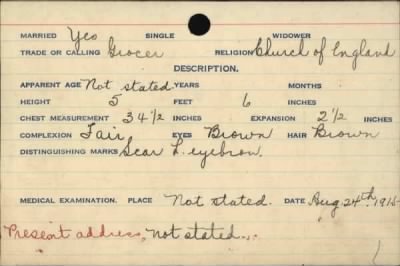 MARRIED Yes SINGLE WIDOWER
TRADE OR CALLING Grocer RELIGION Church of England
DESCRIPTION.
APPARENT AGE Not stated. YEARS MONTHS
HEIGHT 5 FEET 6 INCHES
CHEST MEASUREMENT 34 1/2 INCHES EXPANSION 2 1/2 INCHES
COMPLEXION Fair EYES Brown HAIR Brown
DISTINGUISHING MARKS Scar L. eyebrow.
MEDICAL EXAMINATION. PLACE Not stated. DATE Aug. 24th, 1915
Present address, not stated.